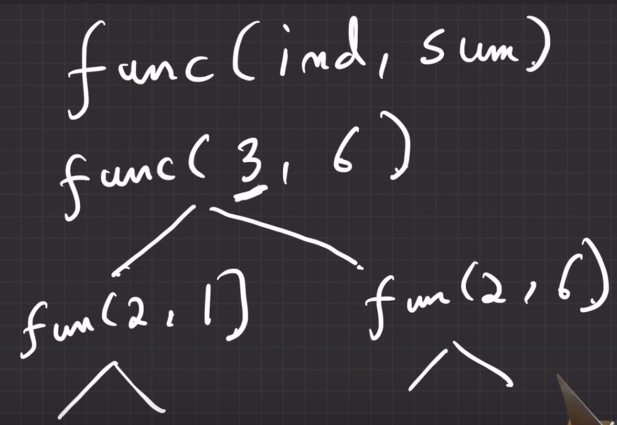 func(ind, sum)
func(3, 6)
fun(2, 1]
fun(2, 6)